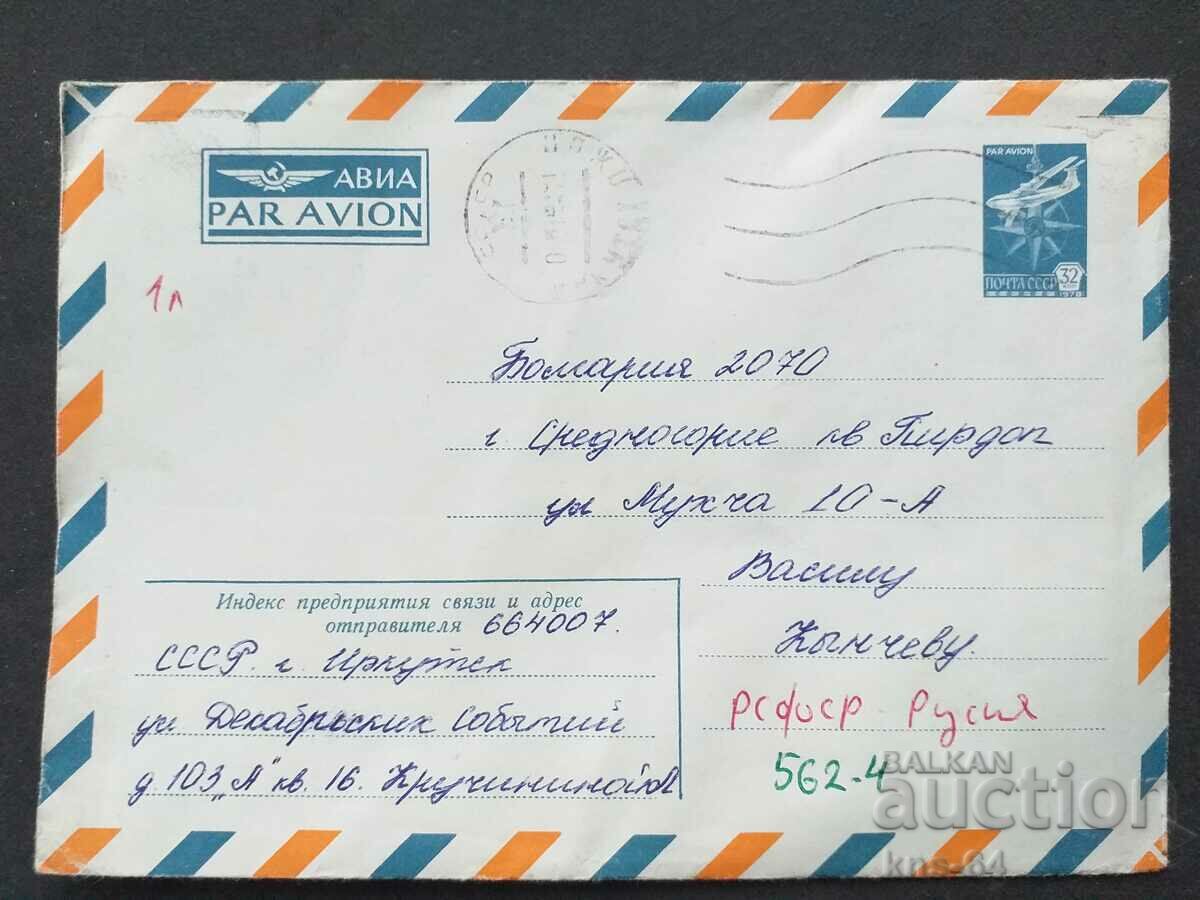 АВИА
PAR AVION
PAR AVION
ПОЧТА СССР
32
1978
1л
Болгария 2070
г. Средногорие кв Пирдоп
ул Мухча 10-А
Василу
Кынчеву.
Индекс предприятия связи и адрес
отправителя 664007.
СССР. г. Иркутск
ул Декабрьских Событий
д. 103 „А" кв. 16. Кручининой А
РСФСР - Русия
562-4
BALKAN
auction
kns-64